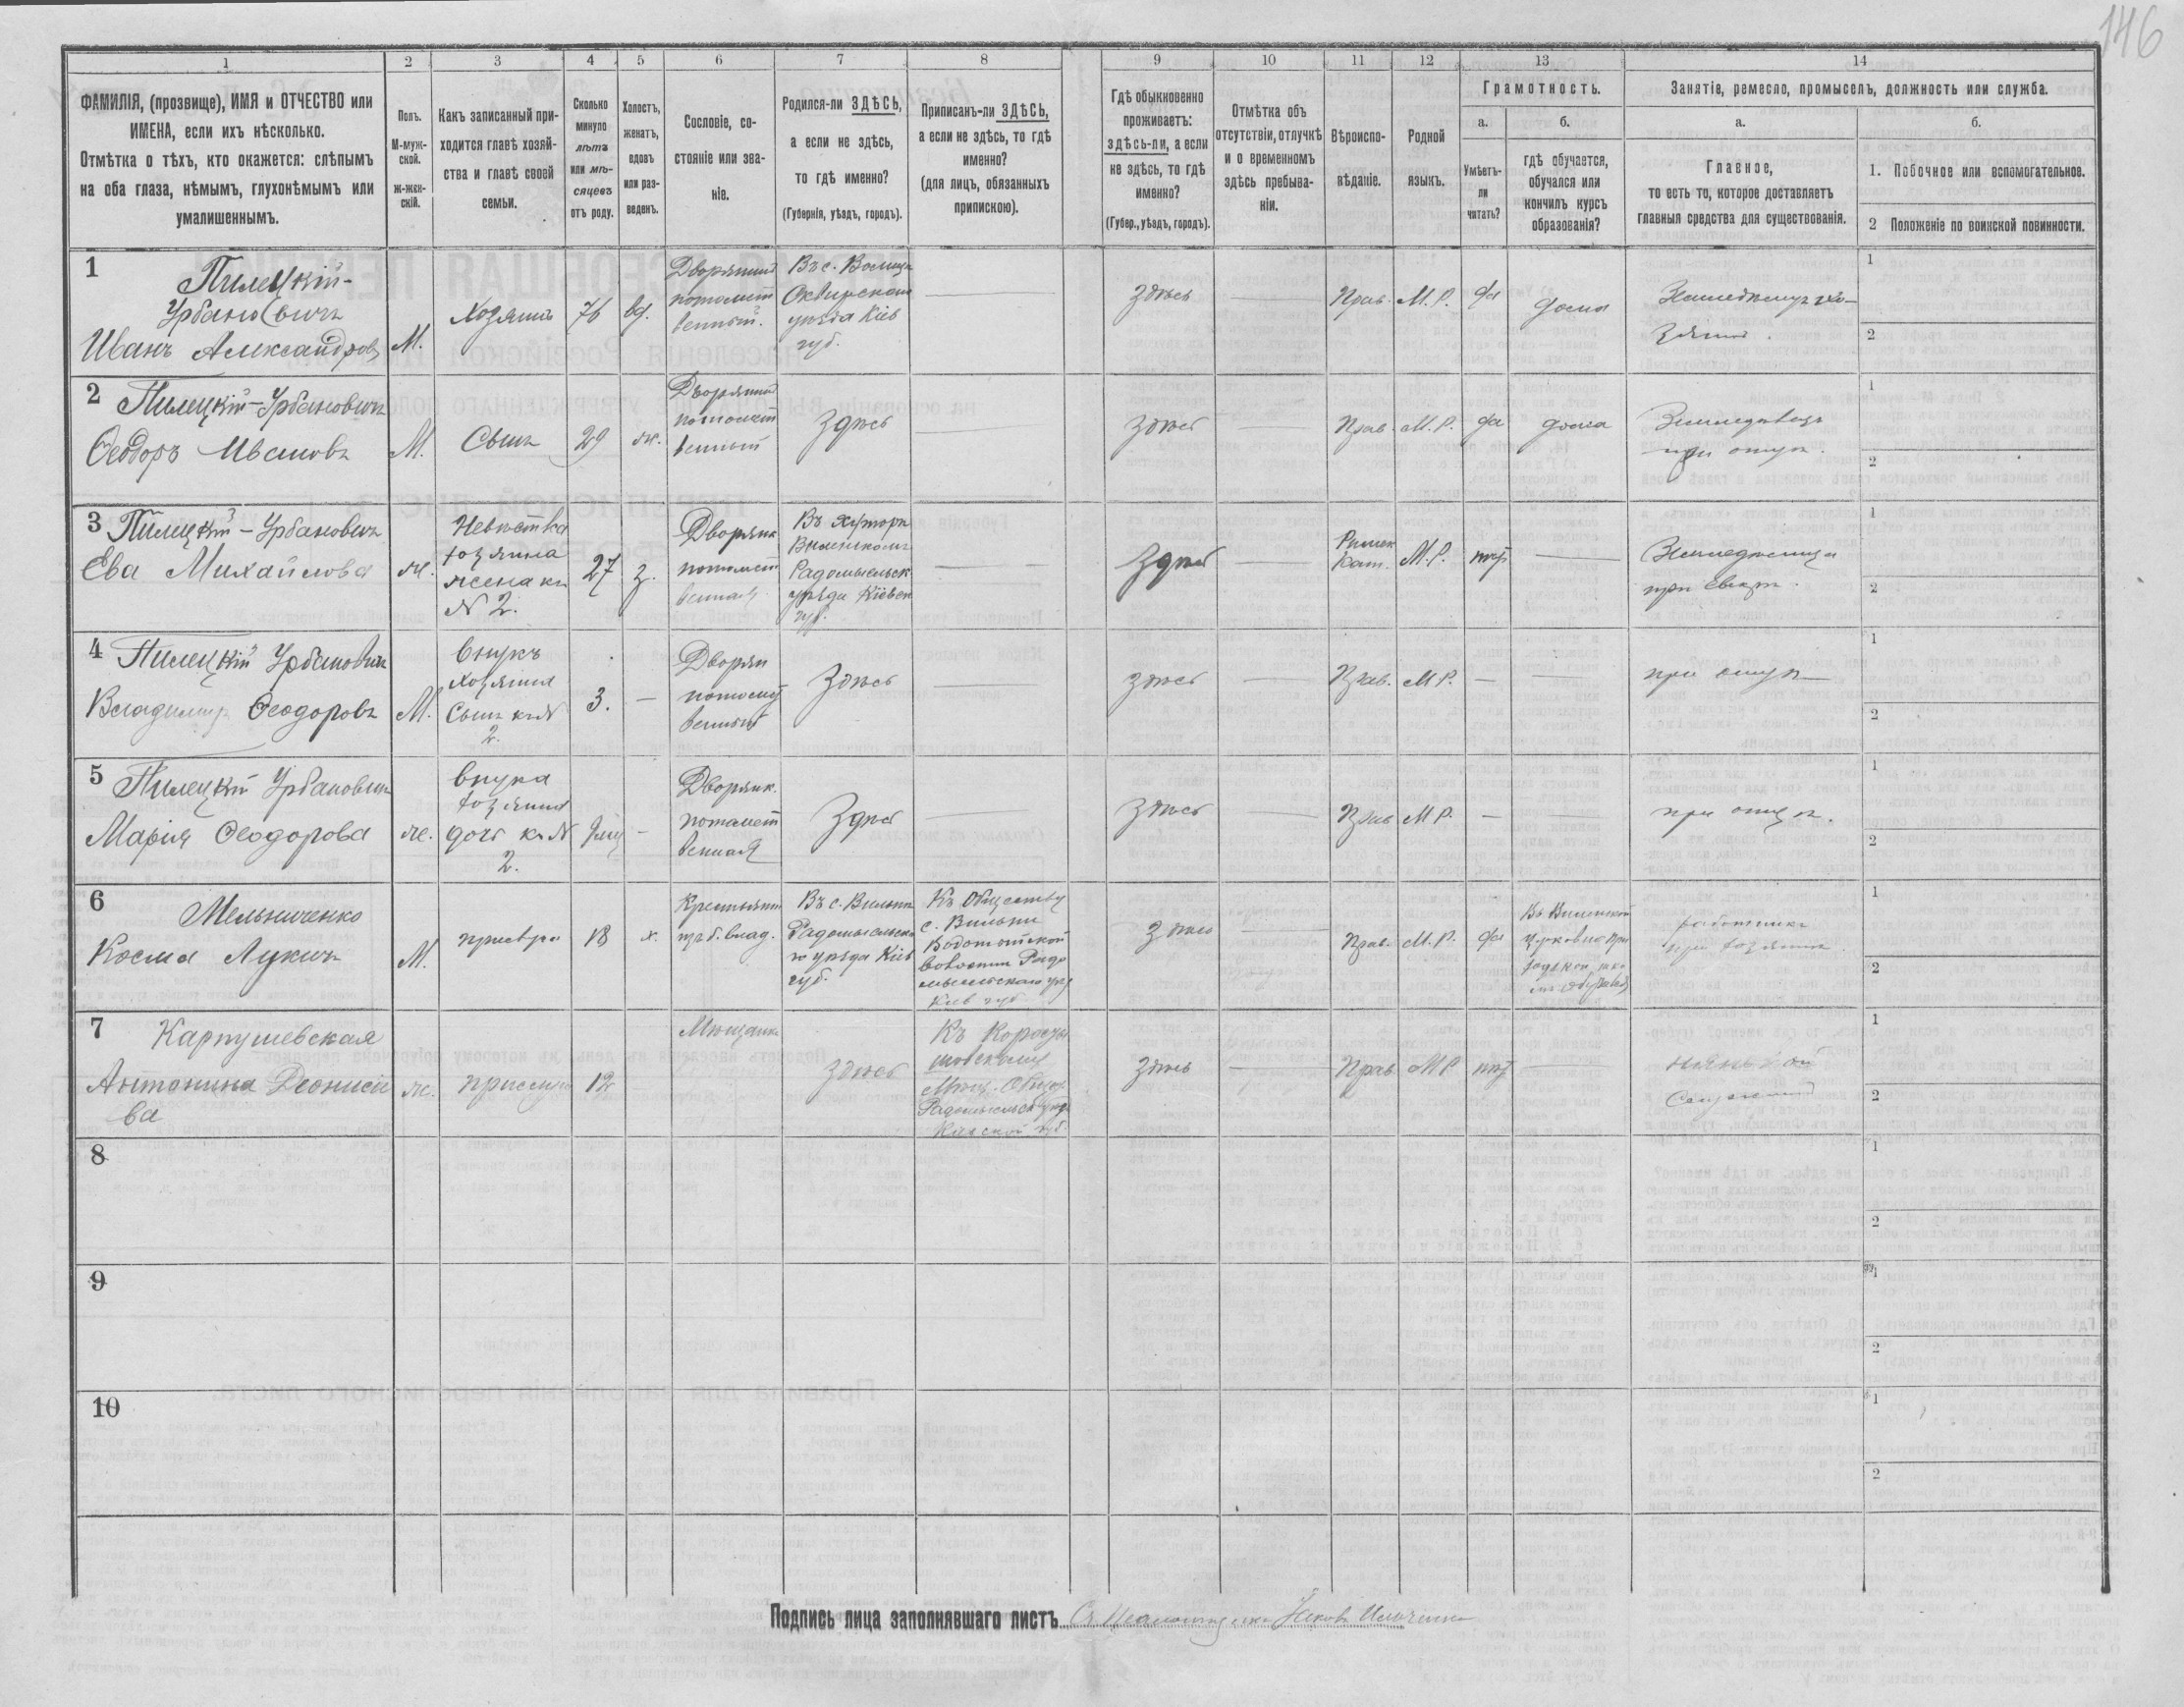 146
1 2 3 4 5 6 7 8 9 10 11 12 13 14
ФАМИЛІЯ, (прозвище), ИМЯ и ОТЧЕСТВО или
ИМЕНА, если ихъ нѣсколько.
Отмѣтка о тѣхъ, кто окажется: слѣпымъ
на оба глаза, нѣмымъ, глухонѣмымъ или
умалишеннымъ.
Полъ.
М-муж-
ской.
ж-жен-
скій.
Какъ записанный при-
ходится главѣ хозяй-
ства и главѣ своей
семьи.
Сколько
минуло
лѣтъ
или мѣ-
сяцевъ
отъ роду.
Холостъ,
женатъ,
вдовъ
или раз-
веденъ.
Сословіе, со-
стояніе или зва-
ніе.
Родился-ли ЗДѢСЬ,
а если не здѣсь,
то гдѣ именно?
(Губернія, уѣздъ, городъ).
Приписанъ-ли ЗДѢСЬ,
а если не здѣсь, то гдѣ
именно?
(для лицъ, обязанныхъ
припискою).
Гдѣ обыкновенно
проживаетъ:
здѣсь-ли, а если
не здѣсь, то гдѣ
именно?
(Губер., уѣздъ, городъ).
Отмѣтка объ
отсутствіи, отлучкѣ
и о временномъ
здѣсь пребыва-
ніи.
Вѣроиспо-
вѣданіе.
Родной
языкъ.
Грамотность.
а.
Умѣетъ-
ли
читать?
б.
гдѣ обучается,
обучался или
кончилъ курсъ
образованія?
Занятіе, ремесло, промыселъ, должность или служба.
а.
Главное,
то есть то, которое доставляетъ
главныя средства для существованія.
б.
1. Побочное или вспомогательное.
2 Положеніе по воинской повинности.
1
Пилецкій-
Урбановичъ
Иванъ Александровъ
М.
Хозяинъ
76
вд.
Дворянинъ
потомст
венный.
Въ с.
Сквирскаго
уѣзда Кіев
губ.
здѣсь
Прав.
М. Р.
да
дома
1
2
2
Пилецкій-Урбановичъ
Ѳеодоръ Ивановъ
М.
Сынъ
29
ж.
Дворянинъ
потомст
венный
Здѣсь
здѣсь
Прав.
М. Р.
да
дома
при отцѣ.
1
2
3
Пилецкій-Урбановичъ
Ева Михайлова
ж.
Невѣстка
хозяина
жена къ
N 2.
27
з.
Дворянк
потомст
венная
Въ хуторѣ
Радомысльск
уѣзда Кіевск
губ.
Здѣсь
Римск
Кат.
М. Р.
нѣт
1
2
4
Пилецкій Урбановичъ
Владиміръ Ѳеодоровъ
М.
внукъ
хозяина
Сынъ къ N
2.
3.
Дворян
потомст
венный
Здѣсь
здѣсь
Прав.
М Р.
при отцѣ
1
2
5
Пилецкій Урбановичъ
Марія Ѳеодорова
ж.
внука
хозяина
дочь къ N
2.
Дворянк.
потомст
венная
Здѣсь
здѣсь
Прав
М Р.
при отцѣ.
1
2
6
Мельниченко
Косма Лукичъ
М.
прислуга
18
х.
Крестьянин
изъ б. влад.
Въ с. Вильнѣ
Радомысльска
го уѣзда Кіев
губ.
Къ Обществу
с. Вильни
волости Радо
мысльскаго уѣз
Кіев губ
здѣсь
Прав.
М. Р.
да
работникъ
при хозяинѣ.
1
2
7
Карпушевская
Антонина Діонисіе
ва
ж.
прислуга
12
Мѣщанка
здѣсь
Къ Коросты
шовскому
Мѣщ. Общес
Радомысльск уѣзд
Кіевской губ.
здѣсь
Прав
М Р
нѣт
1
2
8
1
2
9
1
2
10
1
2
Подпись лица заполнявшаго листъ